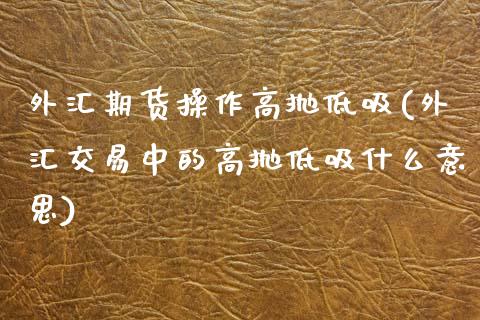 外汇期货操作高抛低吸(外
汇交易中的高抛低吸什么意
思)